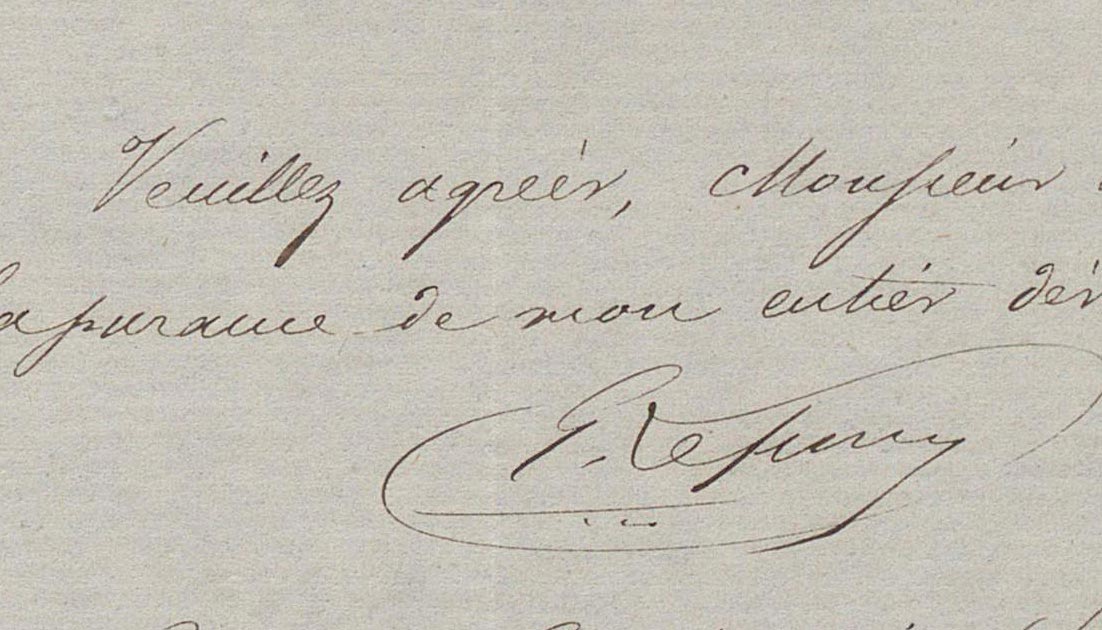 Veuillez agréer, Monsieur
assurance de mon entier dév